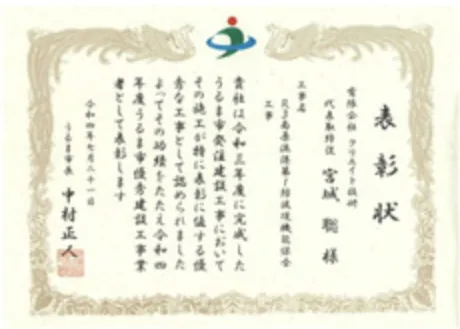 表彰状
有限会社 クリエイト技研
代表取締役 宮城 聡 様
工事名
工事
貴社は令和三年度に完成した
うるま市発注建設工事において
その施工が特に表彰に値する優
秀な工事として認められました
よってその功績をたたえ令和四
年度うるま市優秀建設工事業
者として表彰します
令和四年七月二十一日
うるま市長 中村正人